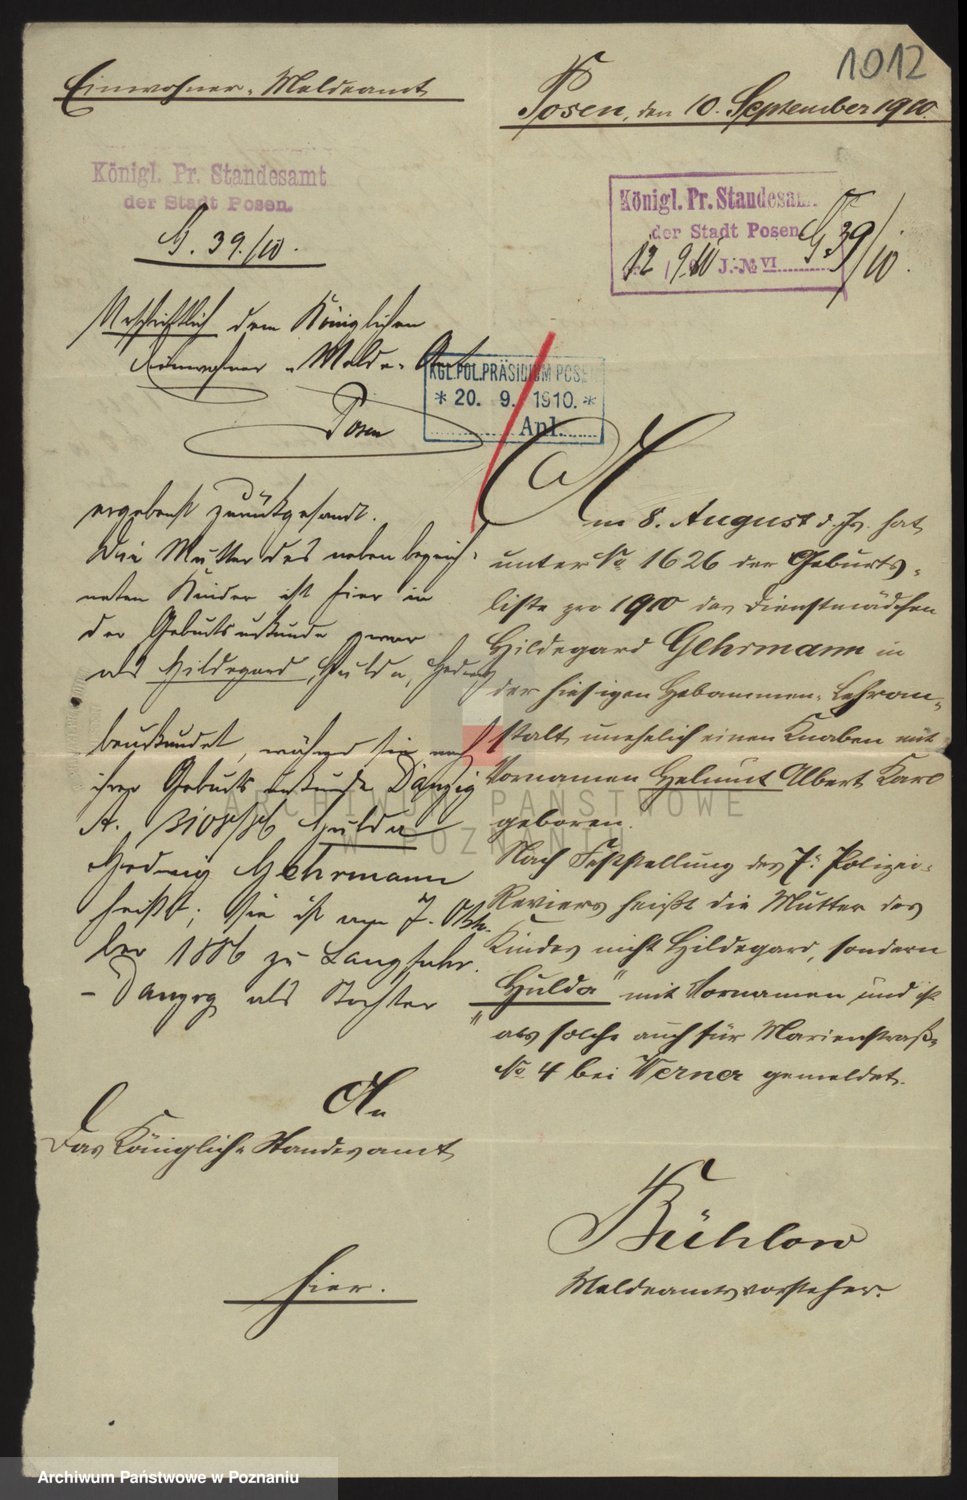 1012
Einwohner-Meldeamt
Posen, den 10. September 1910.
Königl. Pr. Standesamt
der Stadt Posen.
G. 39./10.
Königl. Pr. Standesamt
der Stadt Posen
12. 9. 10 J.-№ VI
G 39/10.
Urschriftlich dem Königlichen
Einwohner-Melde-Amt
Posen
KGL. POL. PRÄSIDIUM POSEN
* 20. 9. 1910. *
Anl.
ergebenst zurückgesandt.
Die Mutter des neben bezeich-
neten Kindes ist hier in
der Geburtsurkunde zwar
als Hildegard, Hulda, Hedwig
beurkundet, während sie nach
ihrer Geburtsurkunde Danzig
Hulda
Hedwig Gehrmann
heißt; sie ist am 7. Okto-
ber 1886 zu Langfuhr
- Danzig als Tochter
Am 8. August d. Js. hat
unter No 1626 der Geburts-
liste pro 1910 das Dienstmädchen
Hildegard Gehrmann in
der hiesigen Hebammen-Lehran-
stalt unehelich einen Knaben mit
Vornamen Helmut Albert Karl
geboren.
Nach Feststellung des 7. Polizei-
Reviers heißt die Mutter des
Kindes nicht Hildegard, sondern
"Hulda" mit Vornamen und ist
als solche auch für Marienstraße
No 4 bei Werner gemeldet.
An
Das Königliche Standesamt
hier.
Bühlow
Meldeamtsvorsteher.
ARCHIWUM PAŃSTWOWE
W POZNANIU
Archiwum Państwowe w Poznaniu